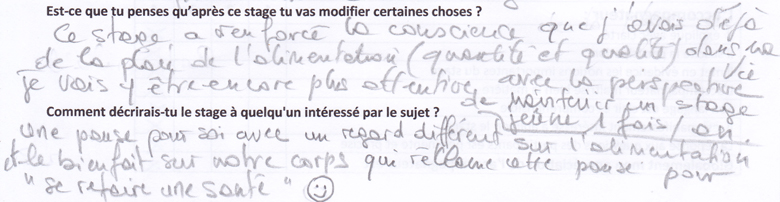 Est-ce que tu penses qu'après ce stage tu vas modifier certaines choses ?
Ce stage a renforcé la conscience que j'avais déjà
de la place de l'alimentation (quantité et qualité) dans ma vie
je vais y être encore plus attentive avec la perspective
de maintenir un stage
jeûne 1 fois/an.
Comment décrirais-tu le stage à quelqu'un intéressé par le sujet ?
une pause pour soi avec un regard différent sur l'alimentation
et le bienfait sur notre corps qui réclame cette pause pour
"se refaire une santé" ☺